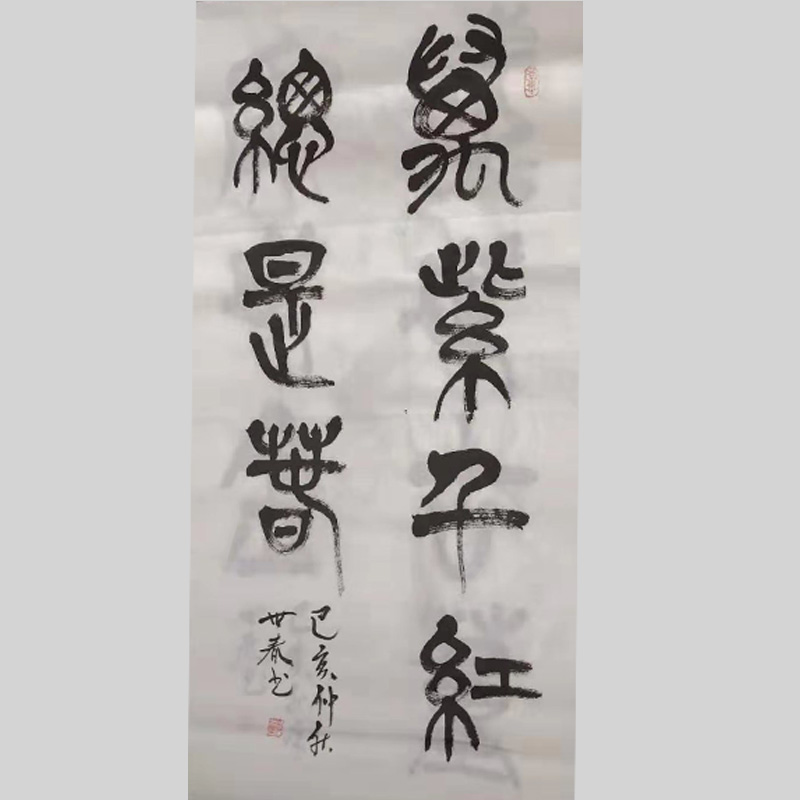 萬紫千紅
總是春
己亥仲秋
世春书